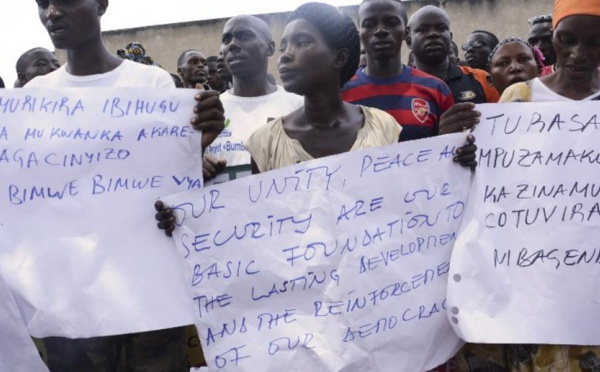 MURIKIRA IBIHUGU
MU KWANKA AKARE-
AGACINYIZO
BIMWE BIMWE VYA
OUR UNITY, PEACE
SECURITY ARE OUR
BASIC FOUNDATION TO
THE LASTING DEVELOPMENT
AND THE REINFORCEMENT
OF OUR DEMOCRACY
TURASA
MPUZAMAKU
KAZINAMU
COTUVIRA
MBAGEN